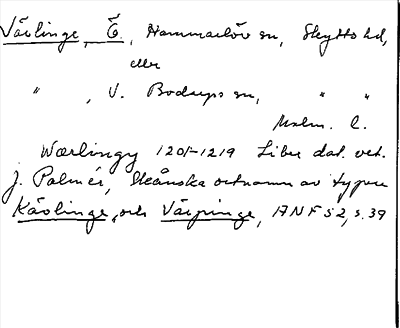 Värlinge, Ö., Hammarlöv sn, Skytts hd,
eller
" , V. Bodarps sn, " "
Malm. l.
Wærlingy 1201-1219 Liber dat. vet.
J. Palmér, Skånska ortnamn av typen
Kävlinge och Värpinge, ANF 52, s. 39